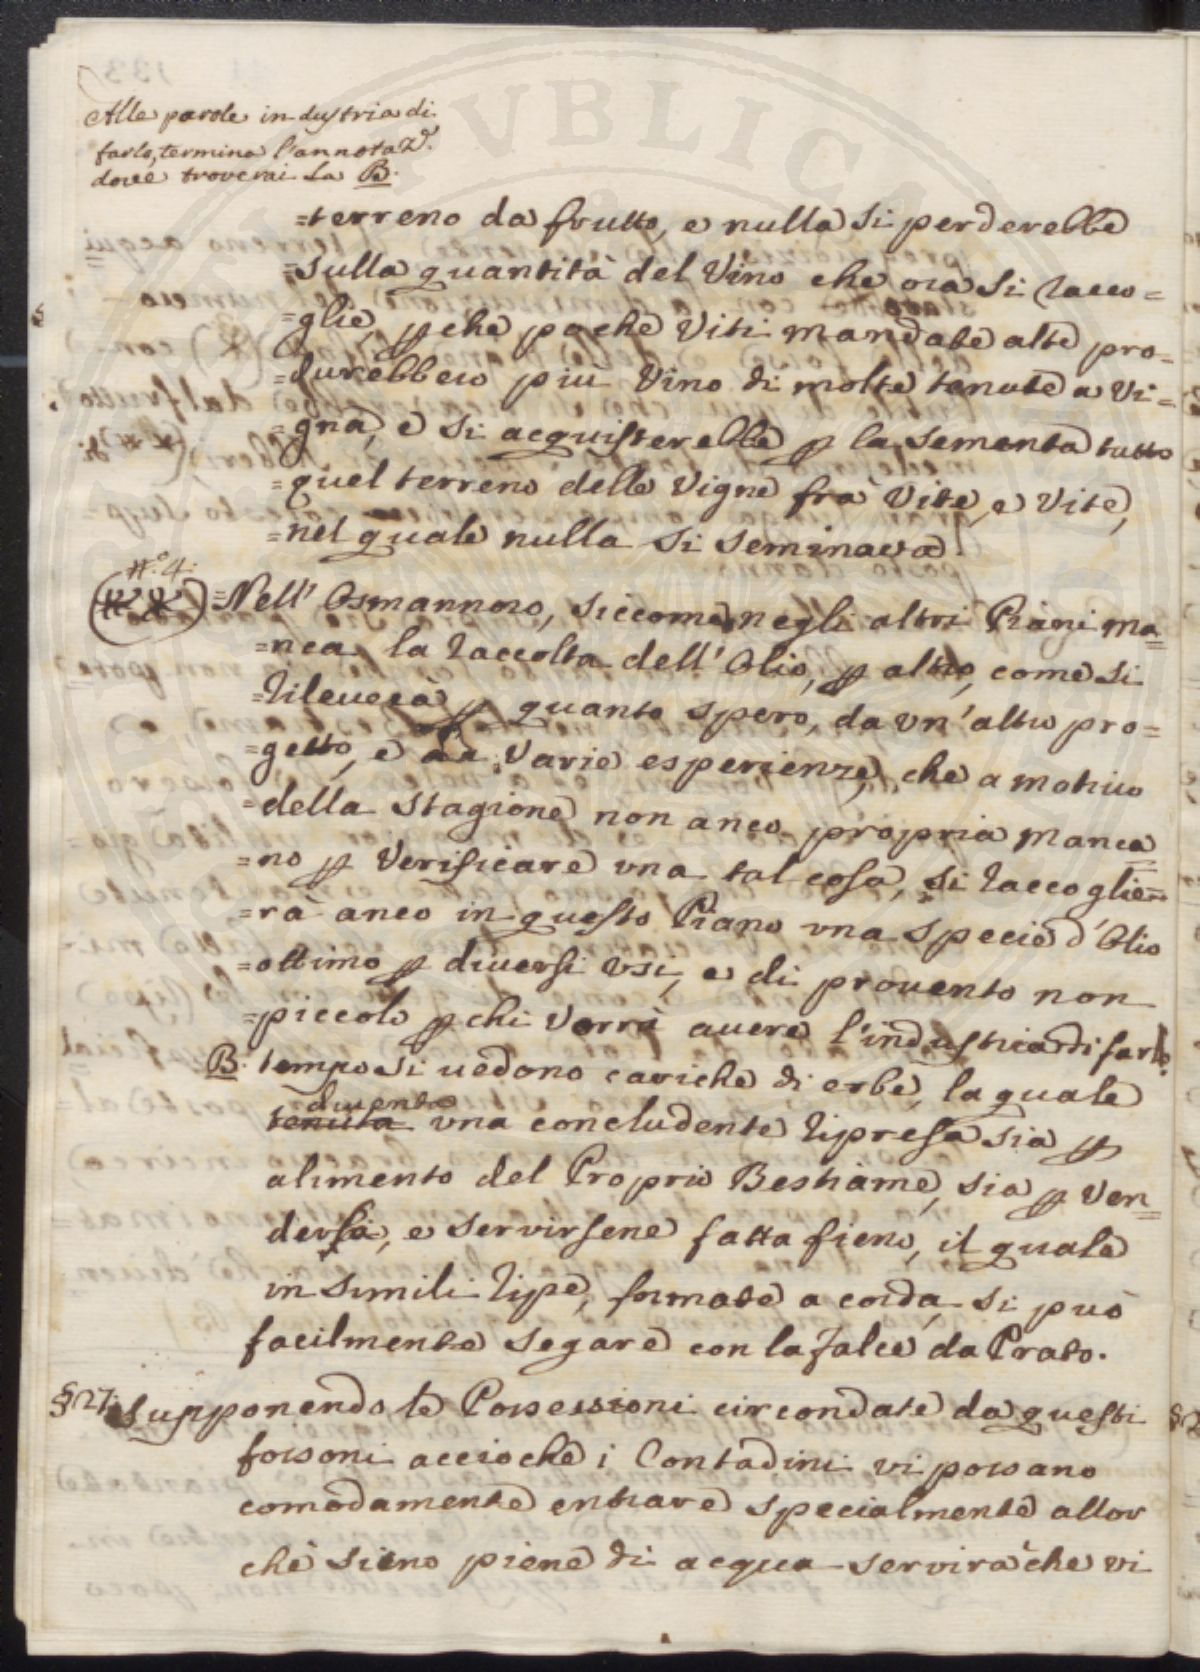 Alle parole industria di
farlo, termina l'annotaz.e
dove troverai la B.
=terreno da frutto, e nulla si perderebbe
=sulla quantità del Vino che ora si racco=
=glie, p che poche Viti mandate alte pro=
=durebbero più Vino di molte tenute a Vi=
=gna, e si acquisterebbe p la sementa tutto
=quel terreno delle Vigne fra Vite, e Vite,
=nel quale nulla si seminava.
N.o 4.
=Nell' Osmannoro, siccome negli altri Piani ma
=nca la raccolta dell' Olio, p altro, come si
=rileverà p quanto spero, da un' altro pro=
=getto, e da varie esperienze, che a motivo
=della Stagione non anco propria manca
=no p Verificare una tal cosa, si raccoglie=
=rà anco in questo Piano una specie d' Olio
=ottimo p diversi usi, e di provento non
=piccolo p chi Vorrà avere l'industria di farlo.
B. tempo si vedono cariche di erbe, la quale
diventa
tenuta una concludente ripresa sia p
alimento del Proprio Bestiame, sia p Ven=
dersi, e servirsene fatta fieno, il quale
in simili ripe, formate a corda, si può
facilmente segare con la falce da Prato.
§ 27. Supponendo le Possessioni circondate da questi
fossoni acciochè i Contadini vi possano
comodamente entrare specialmente allor
chè sieno piene di acqua servirà che vi